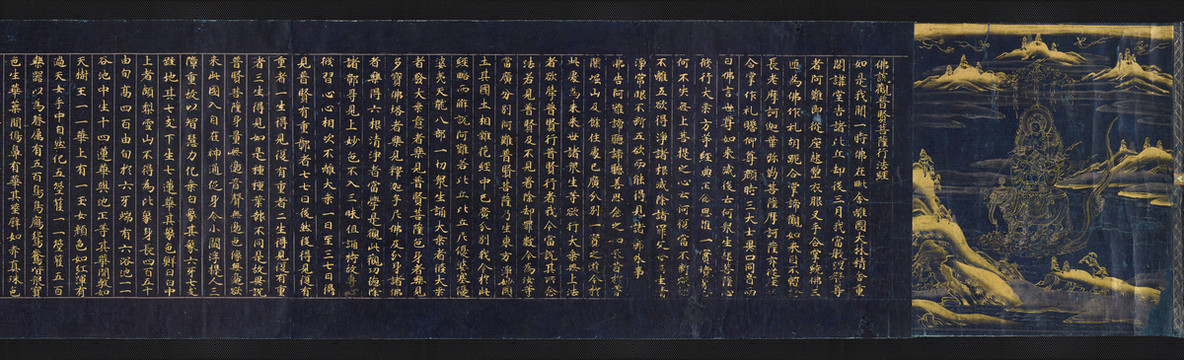 佛說觀普賢菩薩行法經
如是我聞一時佛在毗舍離國大林精舍重
閣講堂告諸比丘却後三月我當般涅槃尊
者阿難即從座起整衣服叉手合掌繞佛三
匝為佛作礼胡跪合掌諦觀如來目不暫捨
長老摩訶迦葉弥勒菩薩摩訶薩亦從座起
合掌作礼瞻仰尊顏時三大士異口同音而
白佛言世尊如來滅後云何眾生起菩薩心
修行大乘方等經典正念思惟一實境界云
何不失無上菩提之心云何復當不斷煩惱
不離五欲得淨諸根滅除諸罪父母所生清
淨常眼不斷五欲而能得見諸障外事
佛告阿難諦聽諦聽善思念之如來昔於耆
闍崛山及餘住處已廣分別一實之道今於
此處為未來世諸眾生等欲行大乘無上法
者欲學普賢行普賢行者我今當說其所念
法若有見普賢及不見者除却罪數今為汝等
當廣分別阿難普賢菩薩乃生東方淨妙國
土其國土相雜花經中已廣分別我今於此
經略而解說阿難若比丘比丘尼優婆塞優
婆夷天龍八部一切眾生誦大乘經者修大乘
者發大乘意者樂見普賢菩薩色身者樂見
多寶佛塔者樂見釋迦牟尼佛及分身諸佛
者樂得六根清淨者當學是觀此觀功德除
諸障礙見上妙色不入三昧但誦持故專心
修習心心相次不離大乘一日至三七日得
見普賢有重鄣者七七日後然後得見復有
重者一生得見復有重者二生得見復有重
者三生得見如是種種業報不同是故異說
普賢菩薩身量無邊音聲無邊色像無邊欲
來此國入自在神通促身令小閻浮提人三
障重故以智慧力化乘白象其象六牙七支
跓地其七支下生七蓮華其象色鮮白白中
上者頗梨雪山不得為比象身長四百五十
由旬高四百由旬於六牙端有六浴池一一
浴池中生十四蓮華與池正等其華開敷如
天樹王一一華上有一玉女顏色紅輝有
過天女手中自然化五箜篌一一箜篌五百
樂器以為眷屬有五百鳥鳧鴈鴛鴦皆眾寶
色生華葉間象鼻有華其莖譬如赤真珠色